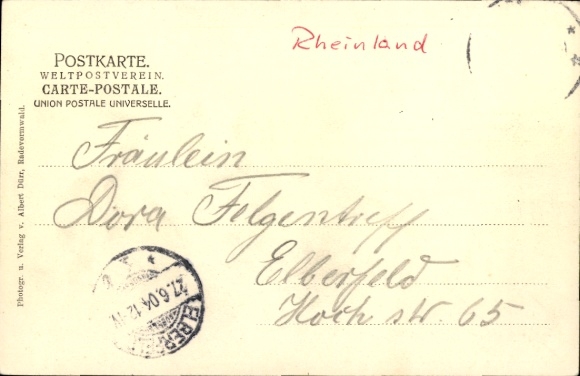 Rheinland
POSTKARTE.
WELTPOSTVEREIN.
CARTE-POSTALE.
UNION POSTALE UNIVERSELLE.
Fräulein
Dora Felgentreff
Elberfeld
Hochstr 65
27.6.04.12
ELBERF
Photogr. u. Verlag v. Albert Dürr, Radevormwald.